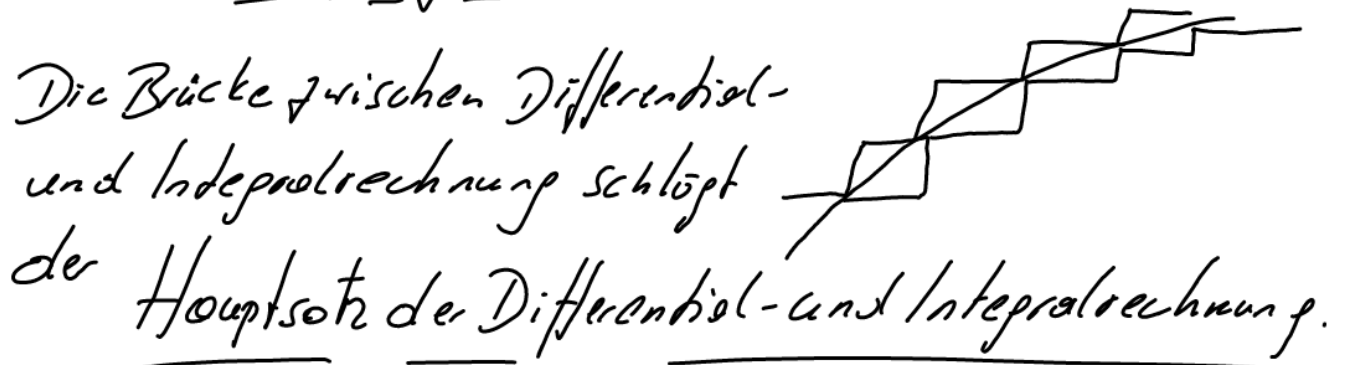 Die Brücke zwischen Differential-
und Integralrechnung schlägt
der Hauptsatz der Differential- und Integralrechnung.